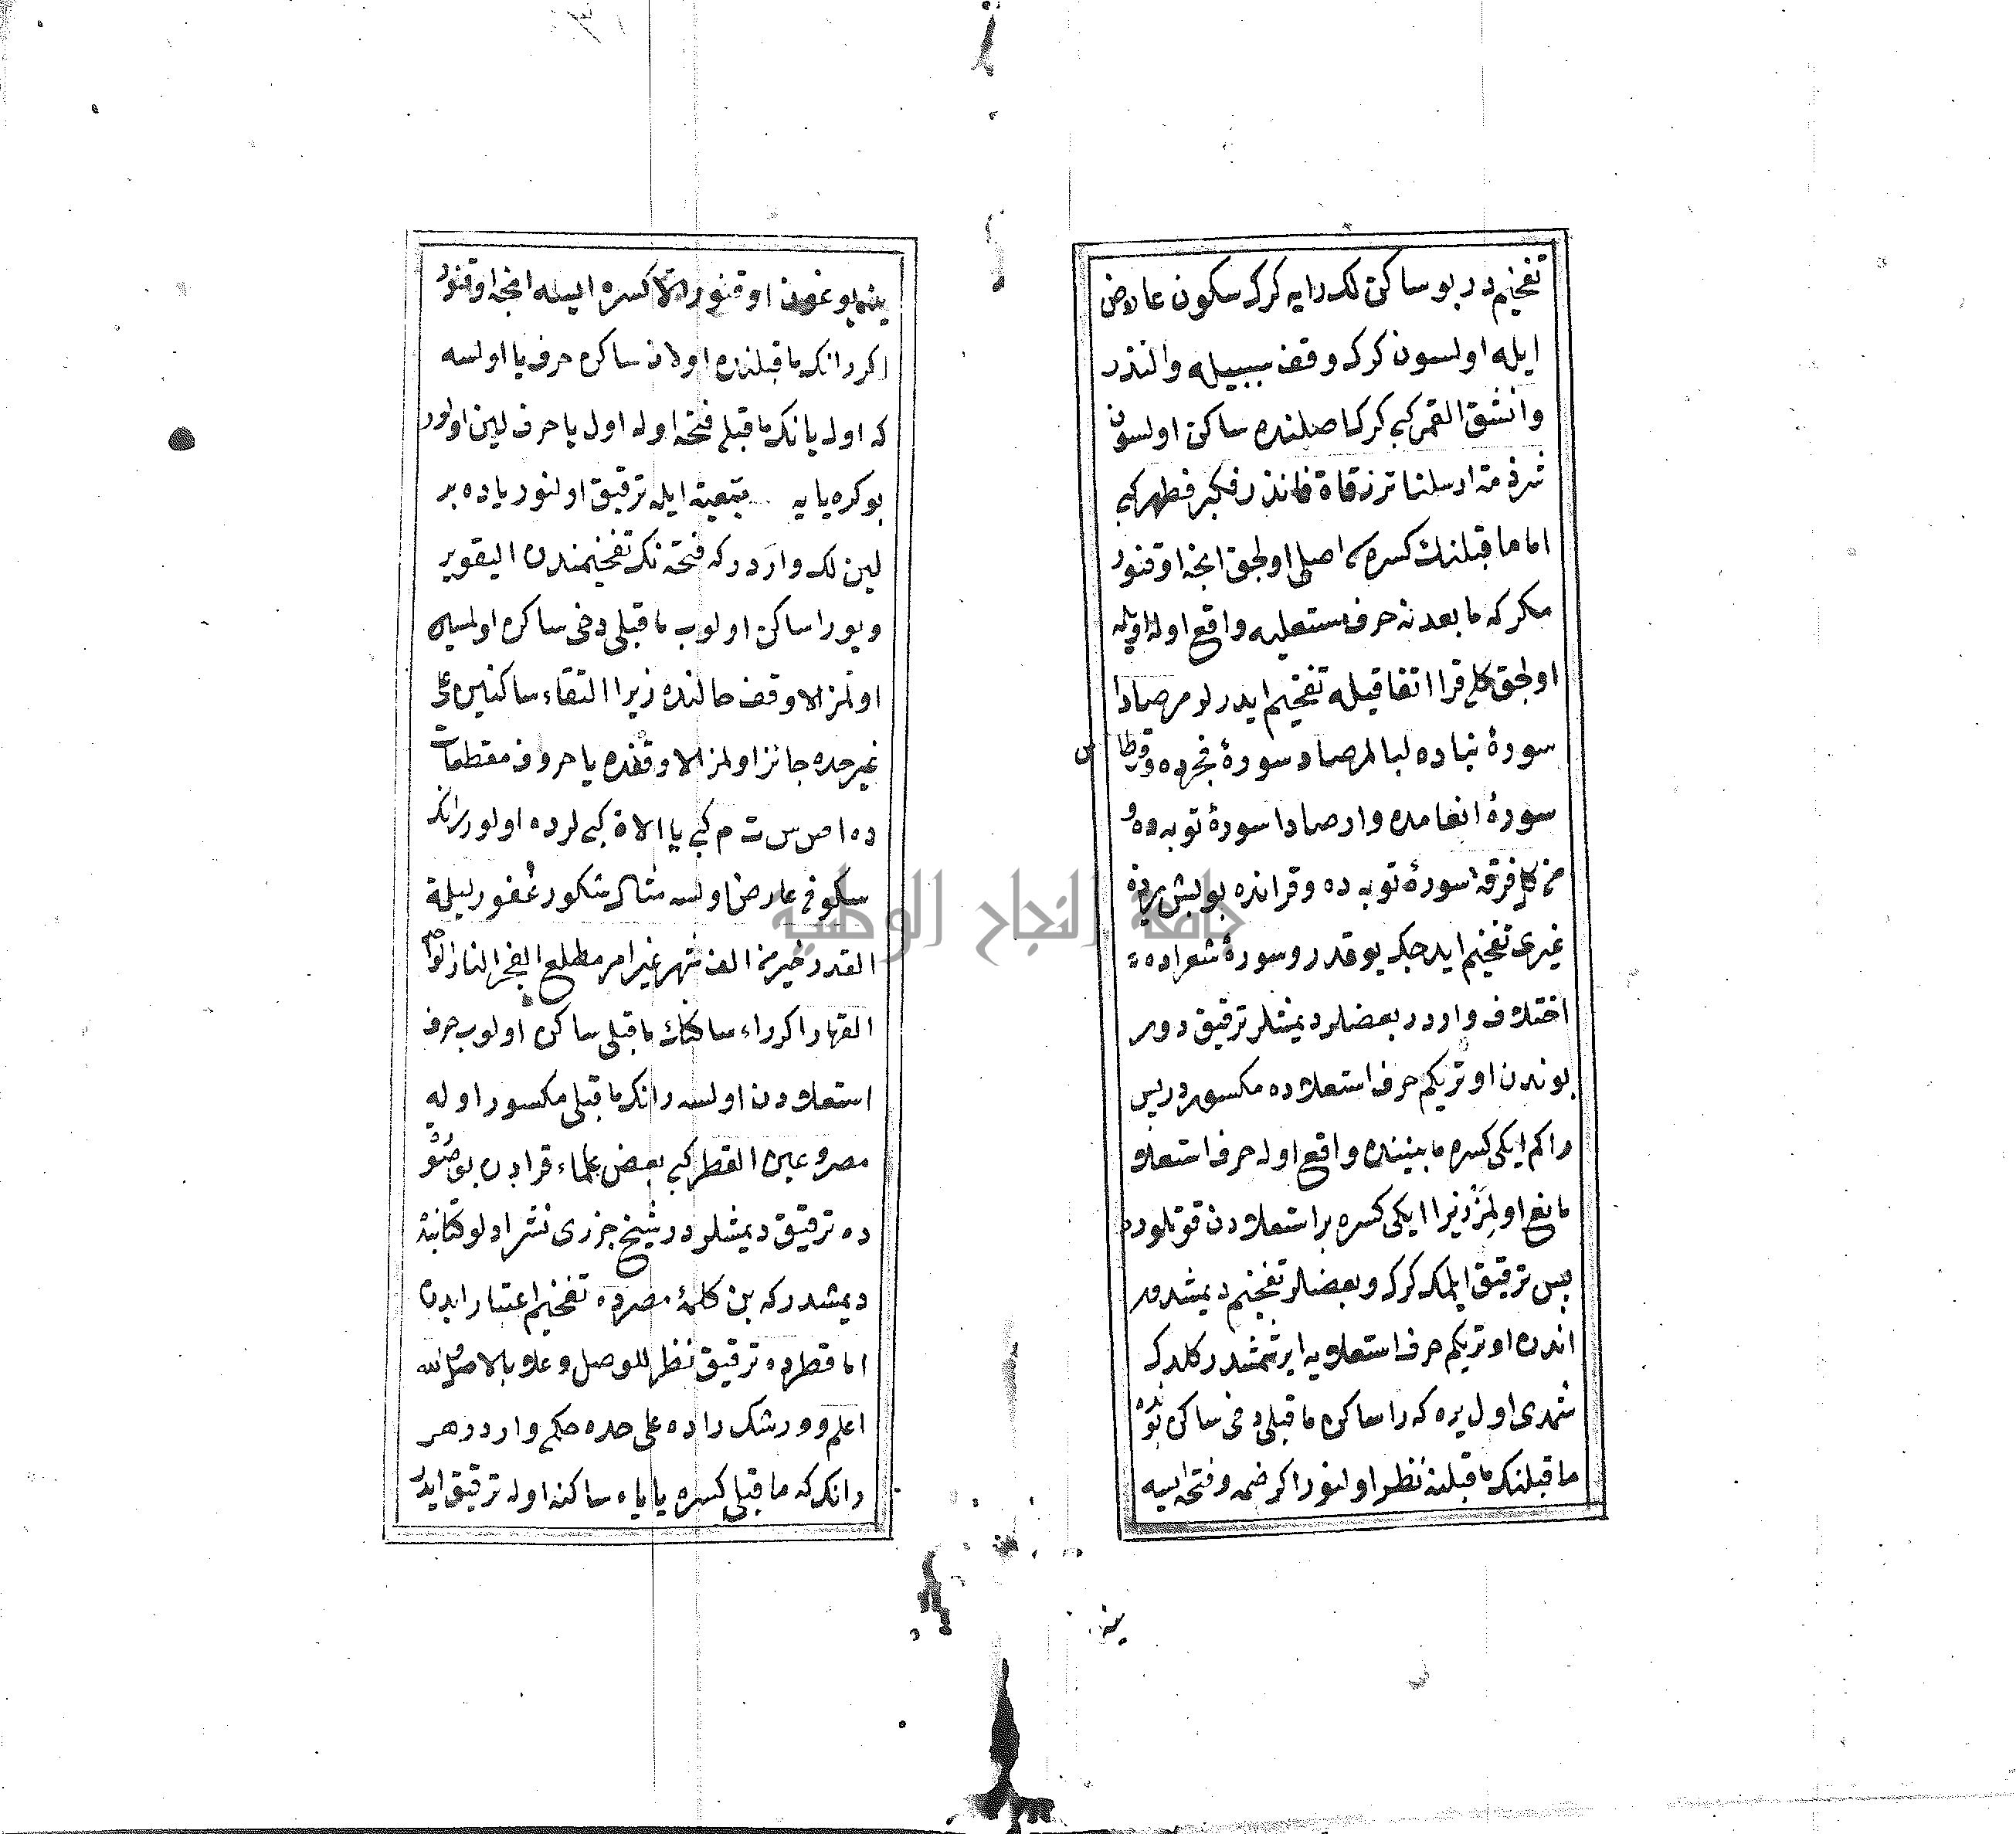 تفخيم در بو ساكن لك رايه كرك سكون عارض
ايله اولسون كرك وقف سببيله والنذر
وانشق القمر كبى كرك اصلنده ساكن اولسون
ارسلنا ترزقاه فانذر فكبر فطهر كبى
اما ما قبلنك كسره سى اصلى اولجق انجه اوقنور
مكر كه ما بعدنه حرف مستعليه واقع اوله اويله
اولجق كل قرا اتفاقيله تفخيم ايدرلر مرصادا
سورۀ نباده لبالمرصاد سورۀ فجرده وقرطاس
سورۀ انعامده وارصادا سورۀ توبه ده و
من كل فرقة سورۀ توبه ده و قرانده بو بش يرده
غيرى تفخيم ايدجك يوقدر و سورۀ شعراده
اختلاف واردر بعضلر ديمشلر ترقيق در
بوندن اوتريكم حرف استعلاده مكسوردر پس
راكم ايكى كسره مابيننده واقع اوله حرف استعلا
مانع اولمز زيرا ايكى كسره بر استعلادن قوتلودر
پس ترقيق ايلمك كرك و بعضلر تفخيم ديمشدر
اندن اوتريكم حرف استعلايه ايرشمشدر كلدك
شمدى اول يره كه را ساكن ما قبلى دخى ساكن
ما قبلنك ما قبلنه نظر اولنور اكر ضمه و فتحه ايسه
ينه
ينه يوغون اوقنور الا كسره ايسه انجه اوقنور
اكر رانك ما قبلنده اولان ساكن حرف يا اولسه
كه اول يانك ما قبلى فتحه اوله اول يا حرف لين اولور
بوكره يايه تبعيت ايله ترقيق اولنور ياده بر
لين لك واردر كه فتحه نك تفخيمندن اليقوير
و بو را ساكن اولوب ما قبلى دخى ساكن اولمسى
اولمز الا وقف حالنده زيرا التقاء ساكنين على
غير حده جائز اولمز الا وقفده يا حروف مقطعات
ده ا ص س ت م كبى يا الاه كبى لرده اولور رانك
سكونى عارض اولسه مثالى شكور غفور ليلة
القدر خير من الف شهر غير امر مطلع الفجر النار
القهار اكر راء ساكنك ما قبلى ساكن اولوب حرف
استعلادن اولسه رانك ما قبلى مكسور اوله
مصر و عين القطر كبى بعض علماء قرادن بو
ده ترقيق ديمشلردر شيخ جزرى نشر ادلو كتابنده
ديمشدر كه بن كلمۀ مصرده تفخيم اعتبار ايدرن
اما قطرده ترقيق نظر للوصل و عملا بالاصل والله
اعلم و ورشك راده على حده حكمى واردر هر
رانك كه ما قبلى كسره يا ياء ساكنه اوله ترقيق ايدر
جامعة النجاح الوطنية